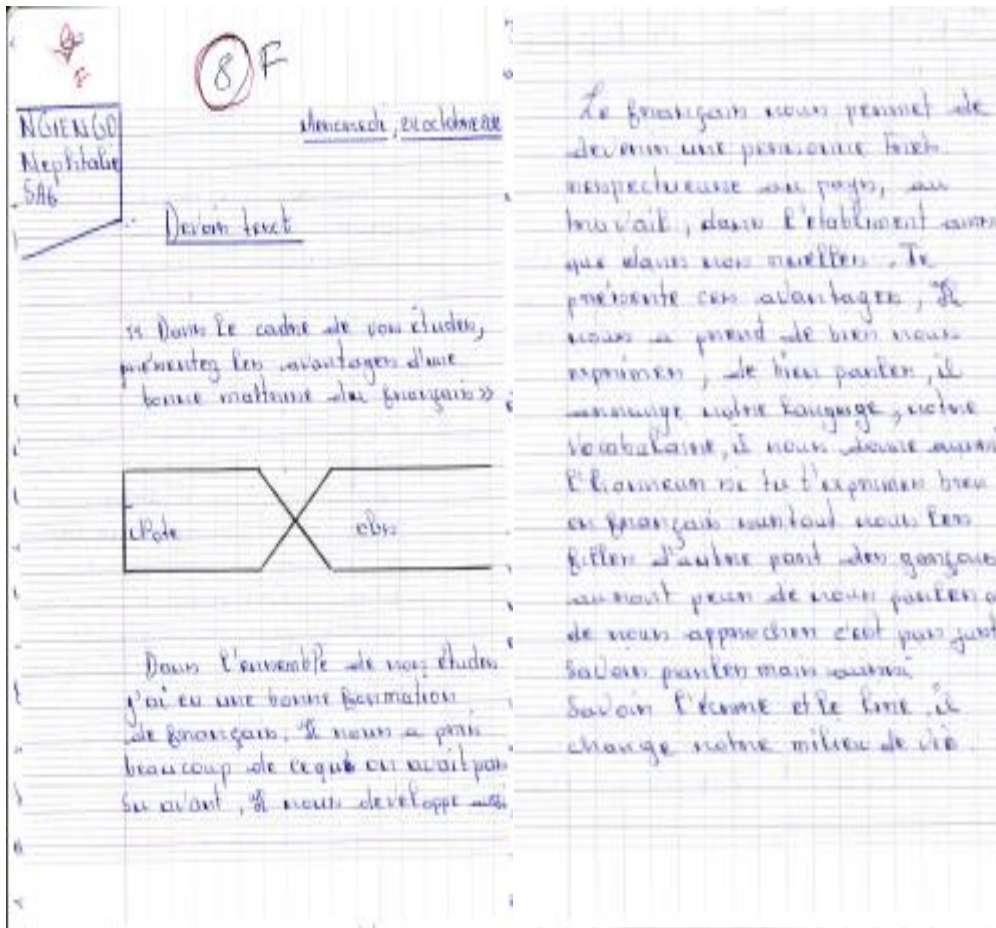 8 F
NGIENGO
Nephtalie
SA6
Mercredi, 21 octobre
Devoir
« Dans le cadre de vos études,
présentez les avantages d'une
bonne du français »
Note
obs
Dans l'ensemble de nos études
j'ai eu une bonne formation
de français. Il nous a pris
beaucoup de ce que on avait pas
su avant, Il nous developpe
Le français nous permet de
devenir une personne très
respectueuse au pays, au
travail, dans l'etabliment aussi
que dans nos ruelles. Je
présente ces avantages, Il
nous a prend de bien nous
exprimer, de bien parler, il
arrange notre langage, notre
vocabulaire, il nous donne aussi
l'honneur si tu t'exprimes bien
en français surtout nous les
filles d'autre part des garçons
auront peur de nous parler
de nous approcher c'est pas just
savoir parler mais aussi
savoir l'écrire et le lire, il
change notre milieu de vie.